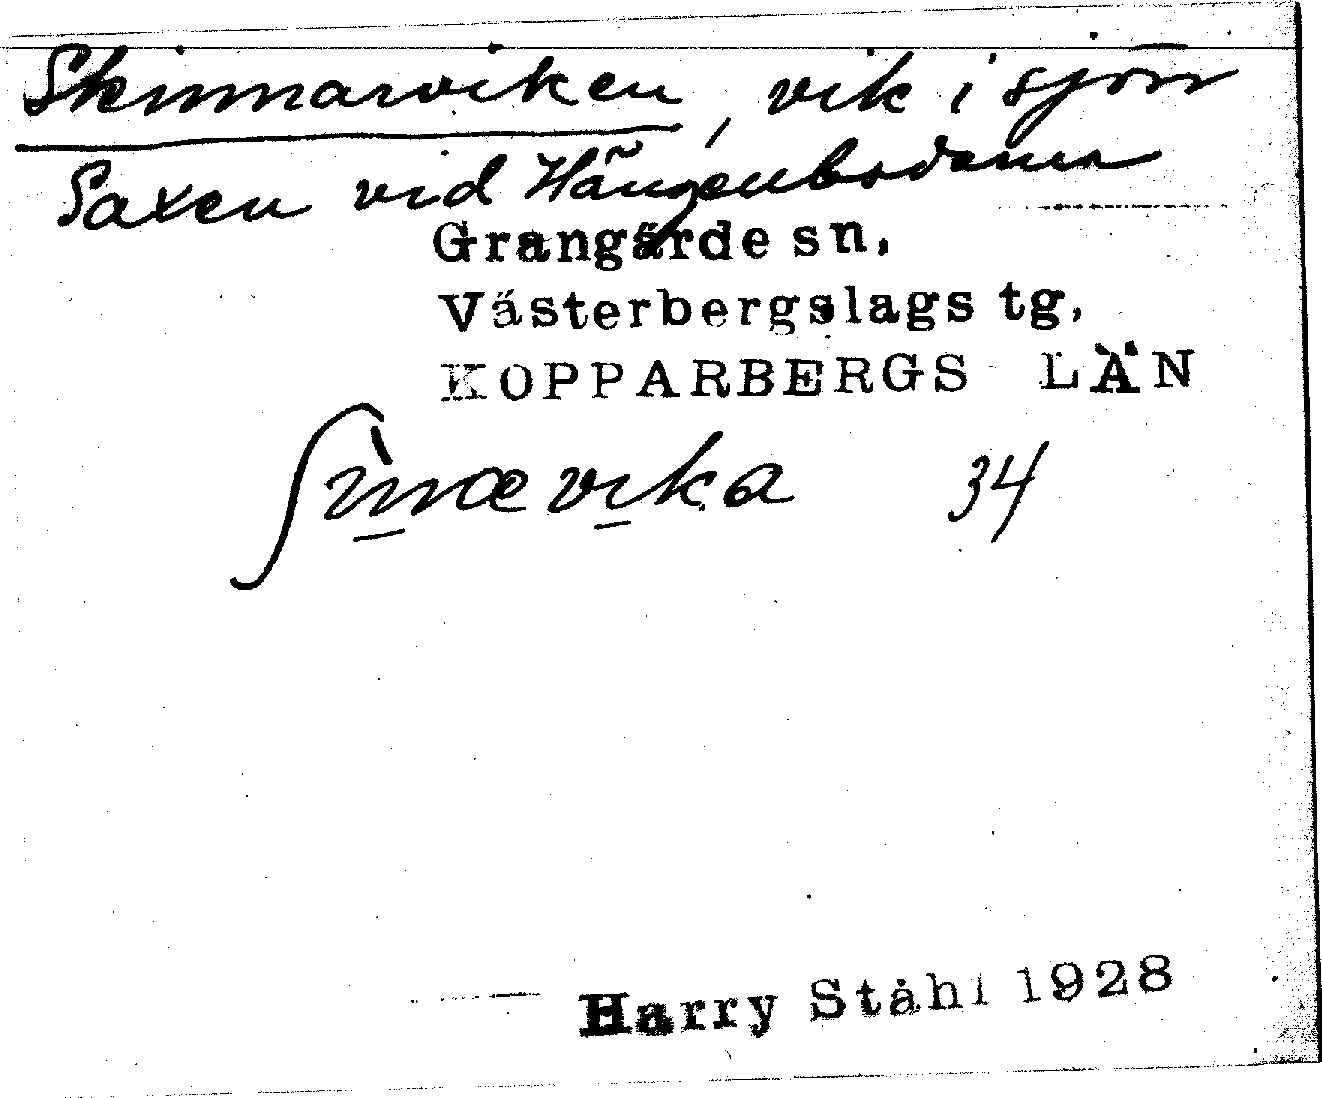 Skinnarviken, vik i sjön
Saxen vid Hängenbodarna
Grangärde sn.
Västerbergslags tg.
KOPPARBERGS LÄN
34
Harry Ståhl 1928